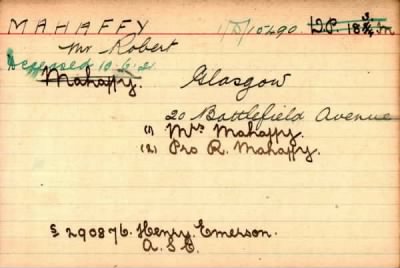 MAHAFFY
Mr Robert
Deceased 10.6.21
Mahaffy.
Glasgow
20 Battlefield Avenue
(1) Mrs Mahaffy.
(2) Pro R. Mahaffy.
S 290876. Henry. Emerson.
A.S.C.